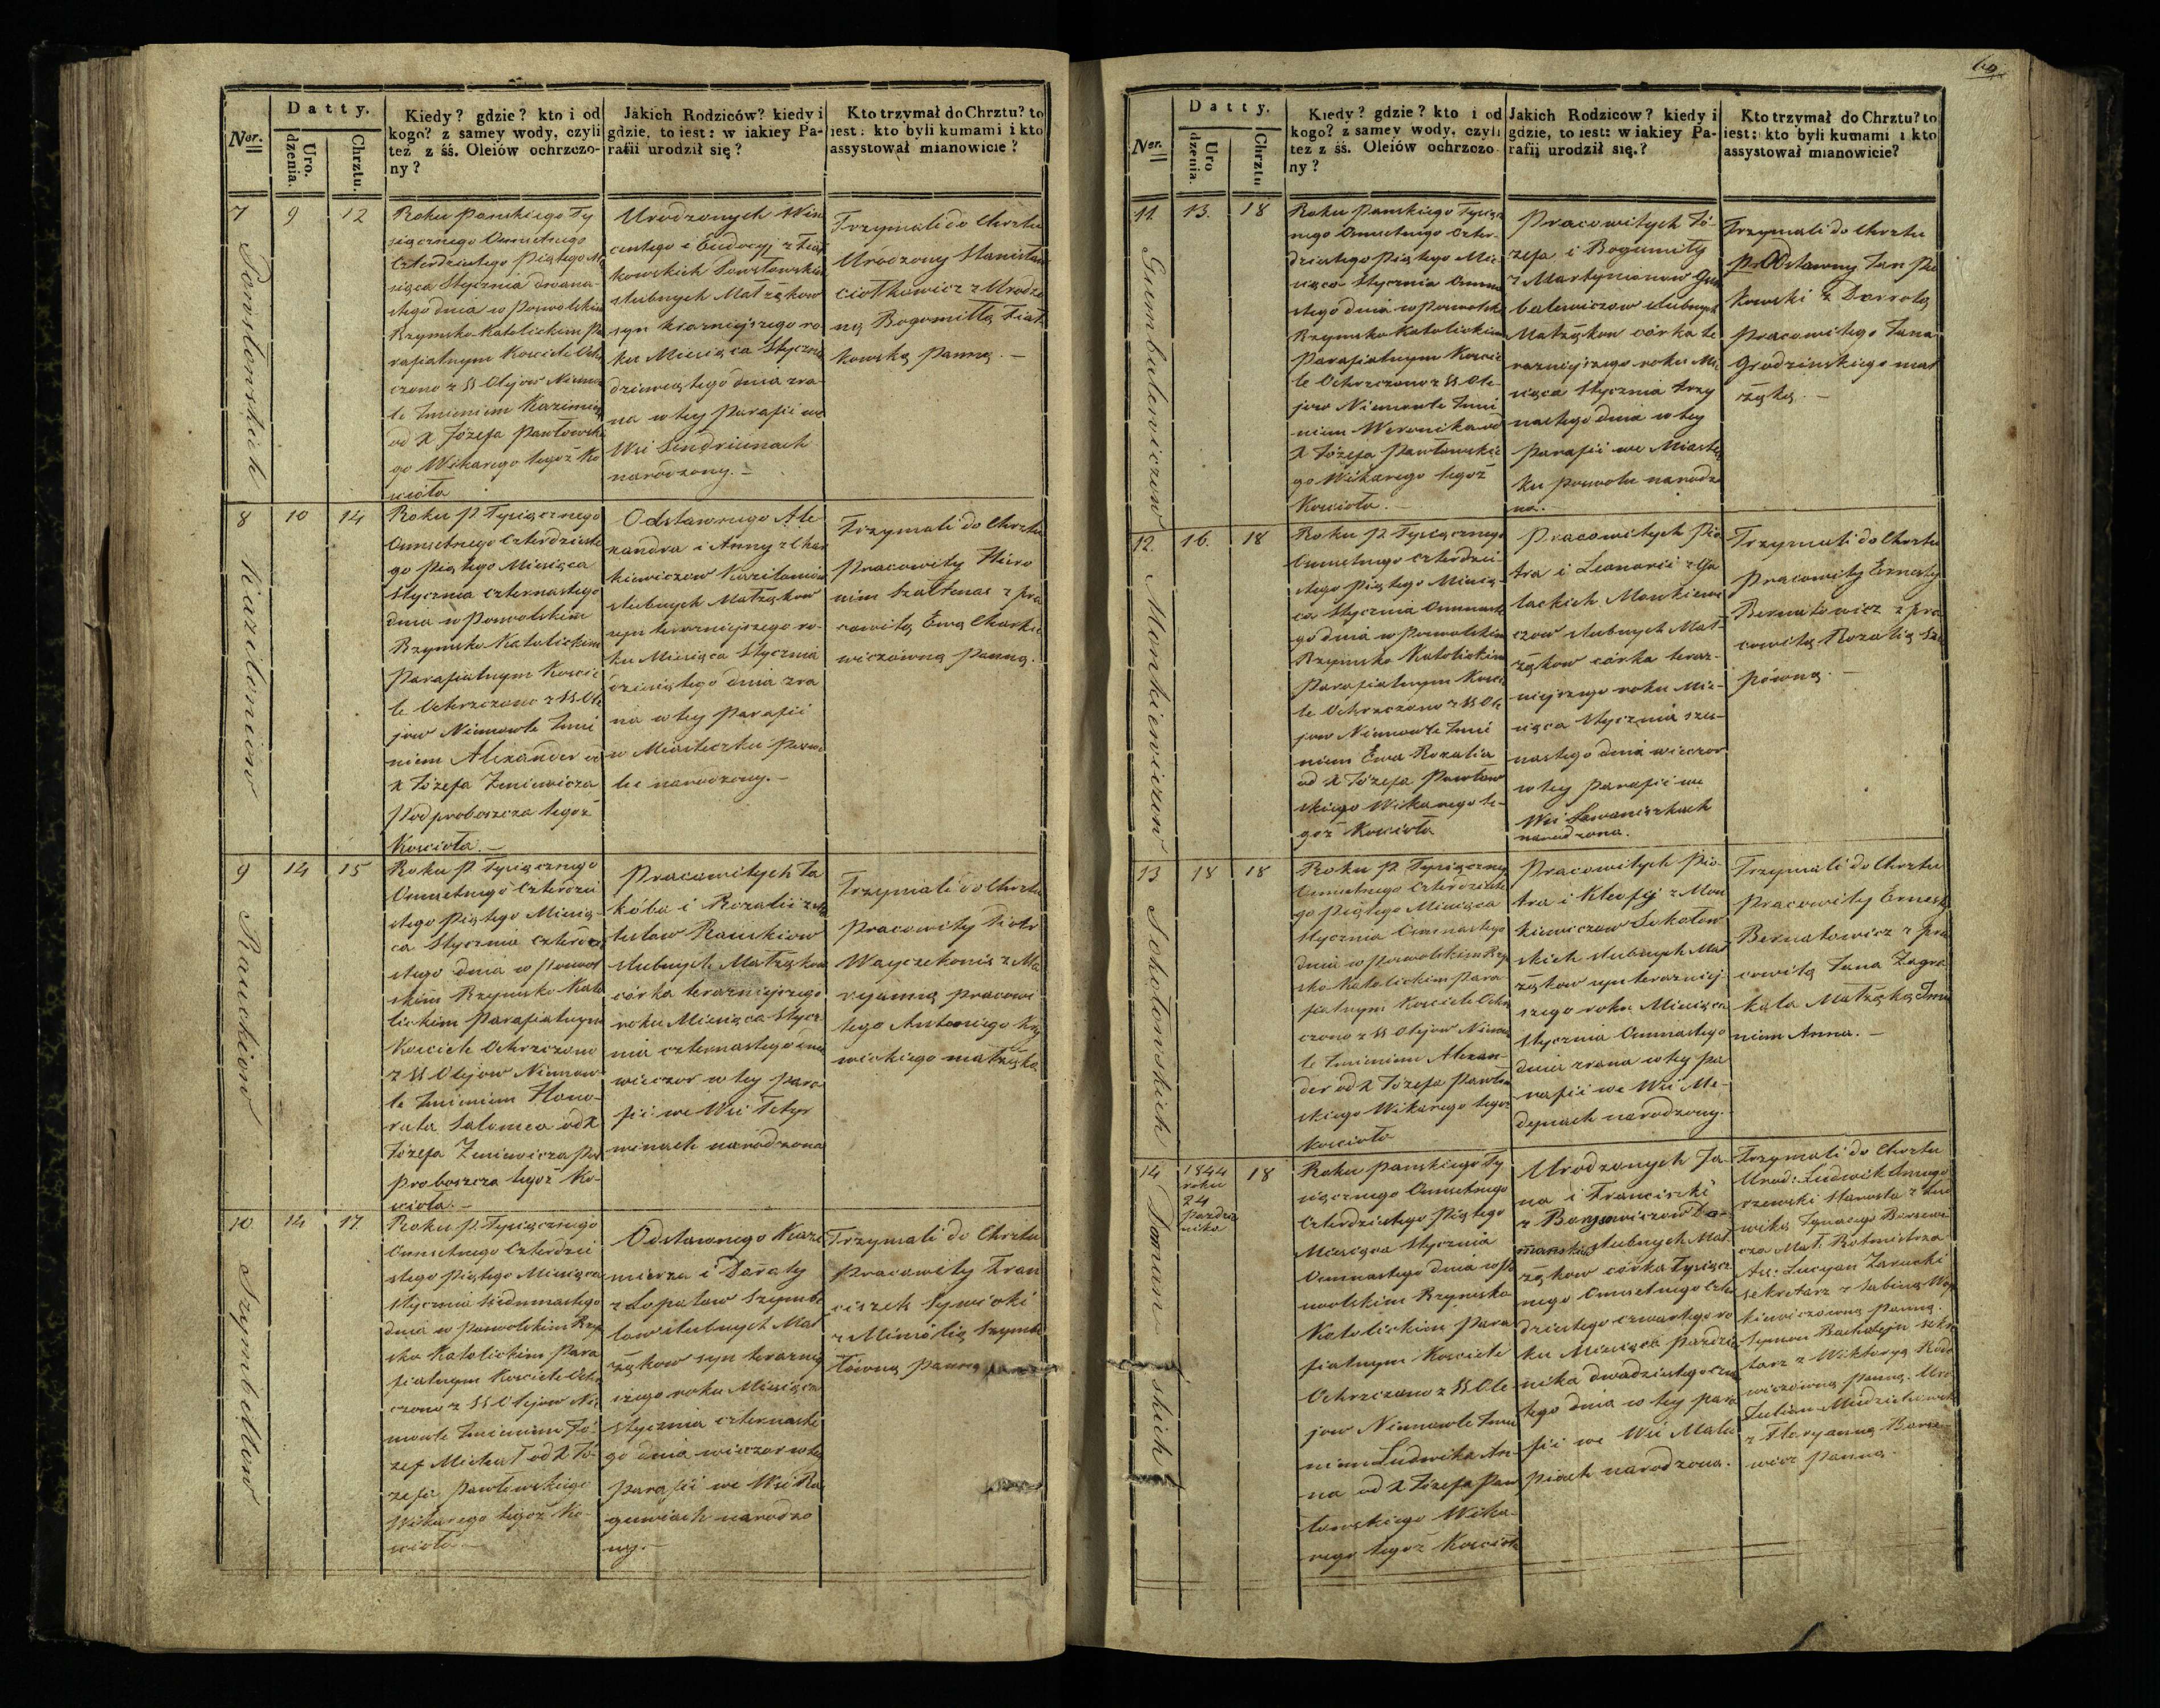 Nor.
Datty.
Uro.
dzenia.
Chrztu.
Kiedy? gdzie? kto i od
kogo? z samey wody, czyli
też z śś. Oleiów ochrzczo-
ny?
Jakich Rodziców? kiedy i
gdzie, to iest: w iakiey Pa-
rafii urodził się?
Kto trzymał do Chrztu? to
iest: kto byli kumami i kto
assystował mianowicie?
7
9
12
Roku Pańskiego Ty
siącznego Osmsetnego
Czterdziestego Piątego Mie
siąca Stycznia dwana-
stego dnia w Poswolskim
Rzymsko Katolickim Pa
rafialnym Kosciele Och
czono z SS Olejow Niemow
le Imieniem Kazimierz
od X Józefa Pawłowskie
go Wikarego tegoż Ko
scioła
Urodzonych Win
centego i Eudocyi z
kowskich
slubnych Małżąkow
syn terazniejszego ro
ku Miesiąca Stycznia
dziewiątego dnia zra-
na w tey Parafii we
Wsi
narodzony.-
Trzymali do Chrztu
Urodzony Stanisław
Ciotkowicz z Urodzo
ną Bogomiłłą
kowską Panną.-
8
10
14
Kazilionow
Roku P. Tysiącznego
Osmsetnego Czterdzieste
go Piątego Miesiąca
Stycznia czternastego
dnia w Poswolskim
Rzymsko Katolickim
Parafialnym Koscie
le Ochrzczono z SS Ole
jow Niemowle Imie
niem Alexander od
X Józefa Zmiewicza
Podproboszcza tegoż
Koscioła.-
Odstawnego Ale
xandra i Anny z Char
kiewiczow Kazilionow
slubnych Małżąkow
syn terazniejszego ro-
ku Miesiąca Stycznia
dziesiątego dnia zra
na w tey Parafii
w Miasteczku Poswo
lu narodzony.-
Trzymali do Chrztu
Pracowity Hiero
nim Szaltenas z Pra
cowitą Ewą Charkie
wiczowną Panną.
9
14
15
Rauckiow
Roku P. Tysiącznego
Osmsetnego Czterdzie
stego Piątego Miesią-
ca Stycznia Czterna
stego dnia w Poswol
skim Rzymsko Kato
lickim Parafialnym
Kosciele Ochrzczono
z SS Olejow Niemow
le Imieniem Hono-
rata Salomea od X
Józefa Zmiewicza Pod
proboszcza tegoż Ko-
scioła.-
Pracowitych Ja
kóba i Rozalii z
Rauckiow
slubnych Małżąkow
córka terazniejszego
roku Miesiąca Stycz-
nia czternastego dnia
wieczor w tey Para
fii we Wsi Tetyr
winach narodzona
Trzymali do Chrztu
Pracowity Piotr
Wayczekonis z Ma
ryanną Pracowi
tego Antoniego
wickiego małżąką
10
14
17
Szymbellow
Roku P. Tysiącznego
Osmsetnego Czterdzie
stego Piątego Miesiąca
Stycznia siedmnastego
dnia w Poswolskim Rzym
sko Katolickim Para
fialnym Kosciele Ochrz
czono z SS Olejow Nie
mowle Imieniem Jó-
zef Michał od X Jó-
zefa Pawłowskiego
Wikarego tegoż Ko-
scioła.-
Odstawnego Kazi
mierza i Doraty
z Łopatow Szymbe
low slubnych Mał
żąkow syn terazniej
szego roku Miesiąca
Stycznia czternaste
go dnia wieczor w tey
Parafii we Wsi
narodzo
ny.-
Trzymali do Chrztu
Pracowity Fran
ciszek Sywicki
z Szymbe
łówną Panną
69
Nor.
Datty.
Uro
dzenia.
Chrztu
Kiedy? gdzie? kto i od
kogo? z samey wody, czyli
też z śś. Oleiów ochrzczo
ny?
Jakich Rodziców? kiedy i
gdzie, to iest: w iakiey Pa-
rafii urodził się.?
Kto trzymał do Chrztu? to
iest: kto byli kumami i kto
assystował mianowicie?
11.
13.
18
Gumbalewiczow
Roku Pańskiego Tysiącz
nego Osmsetnego Czter-
dziestego Piątego Mie
siąca Stycznia Osmna
stego dnia w Poswolsk
Rzymsko Katolickim
Parafialnym Koscie
le Ochrzczono z SS Ole-
jow Niemowle Imie
niem Weronika od
X Józefa Pawłowskie
go Wikarego tegoż
Koscioła.-
Pracowitych Jó-
zefa i Bogumiły
z Martynianow Gum
balewiczow slubnych
Małżąkow córka te
razniejszego roku Mie
siąca Stycznia trzy
nastego dnia w tey
Parafii we Miastecz
ku Poswolu narodzo
na.-
Trzymali do Chrztu
Odstawny Jan
kowski z Dorrotą
Pracowitego Jana
Grodzinskiego mał
żąką.-
12.
16.
18
Mankiewiczow
Roku P. Tysiącznego
Osmsetnego Czterdzie-
stego Piątego Miesią-
ca Stycznia Osmnaste
go dnia w Poswolskim
Rzymsko Katolickim
Parafialnym Koscie
le Ochrzczono z SS Ole
jow Niemowle Imie
niem Ewa Rozalia
od X Józefa Pawłow
skiego Wikarego te-
goż Koscioła
Pracowitych Pio
tra i Leonorii z Ga
lackich Mankiewi
czow slubnych Mał-
żąkow córka teraz-
niejszego roku Mie-
siąca Stycznia szes-
nastego dnia wieczor
w tey Parafii we
Wsi Lewaniszkach
narodzona.
Trzymali do Chrztu
Pracowity Ernesty
Bernatowicz z Pra
cowitą Rozalią
13
18
18
Sokołowskich
Roku P. Tysiączneg
Osmsetnego Czterdzieste
go Piątego Miesiąca
Stycznia Osmnastego
dnia w Poswolskim Rzy
sko Katolickim Para
fialnym Kosciele Ochrz
czono z SS Olejow Niemow
le Imieniem Alexan-
der od X Józefa Pawłow
skiego Wikarego tegoż
Koscioła
Pracowitych Pio
tra i Kleofy z Man
kiewiczow Sokołow
skich slubnych Mał
żąkow syn terazniej-
szego roku Miesiąca
Stycznia Osmnastego
dnia zrana w tey Pa
rafii we Wsi Me-
dynach narodzony.
Trzymali do Chrztu
Pracowity Ernesty
Bernatowicz z Pra
cowitą Jana Zagra
kala Małżąką Imie
niem Anna.-
14
1844
roku
24
Pazdzier
nika
18
Doman skich
Roku Pańskiego Ty
siącznego Osmsetnego
Czterdziestego Piątego
Miesiąca Stycznia
Osmnastego dnia w Po
swolskim Rzymsko
Katolickim Para
fialnym Kosciele
Ochrzczono z SS Ole
jow Niemowle Imie
niem Ludwika An-
na od X Józefa Paw
łowskiego Wika-
rego tegoż Koscioła
Urodzonych Ja-
na i Franciszki
z Do-
manskich slubnych Mał
żąkow córka Tysiącz
nego Osmsetnego Czter
dziestego czwartego ro
ku Miesiąca Pazdzier
nika dwadziestego czwar
tego dnia w tey Para
fii we Wsi
narodzona.
Trzymali do Chrztu
Urod: Ludwik
Starosta z Lud
wiką Ignacego
cza Mał. Rotmistrza
Ass: Lucyan Zarucki
sekretarz z Sabiną
kiewiczowną Panną.
Symon sekre
tarz z Wiktoryą
wiczowną Panną. Uro
Julian
z Floryanną
wicz Panną.